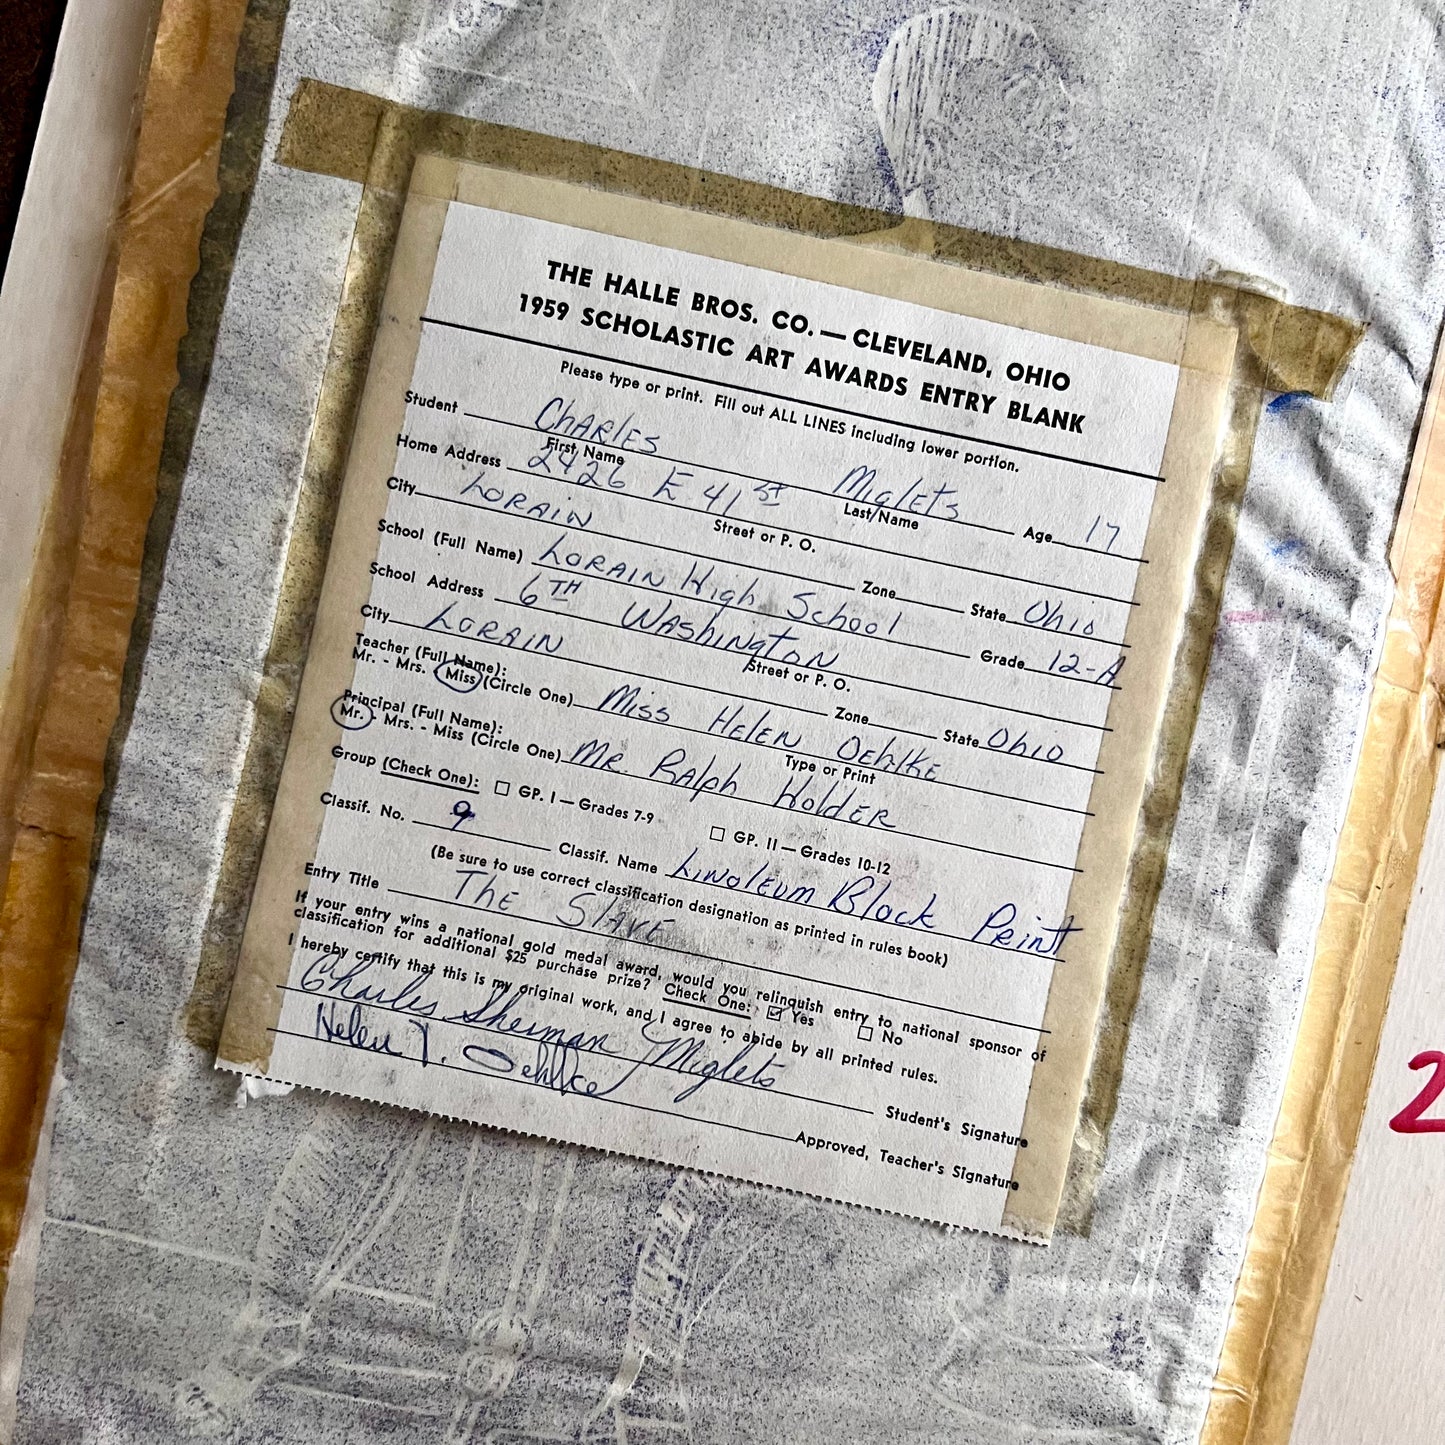 THE HALLE BROS. CO. — CLEVELAND, OHIO
1959 SCHOLASTIC ART AWARDS ENTRY BLANK
Please type or print. Fill out ALL LINES including lower portion.
Student Charles Miglets Age 17
First Name Last Name
Home Address 2426 E. 41st
Street or P. O.
City Lorain Zone State Ohio
School (Full Name) Lorain High School Grade 12-A
School Address 6TH Washington
Street or P. O.
City Lorain Zone State Ohio
Teacher (Full Name):
Mr. - Mrs. Miss (Circle One) Miss Helen Oehlke
Type or Print
Principal (Full Name):
Mr. - Mrs. - Miss (Circle One) Mr. Ralph Holder
Group (Check One): GP. I — Grades 7-9 GP. II — Grades 10-12
Classif. No. 9 Classif. Name Linoleum Block Print
(Be sure to use correct classification designation as printed in rules book)
Entry Title The Slave
If your entry wins a national gold medal award, would you relinquish entry to national sponsor of
classification for additional $25 purchase prize? Check One: Yes No
I hereby certify that this is my original work, and I agree to abide by all printed rules.
Charles Sherman Miglets
Student's Signature
Helen Y. Oehlke
Approved, Teacher's Signature
2